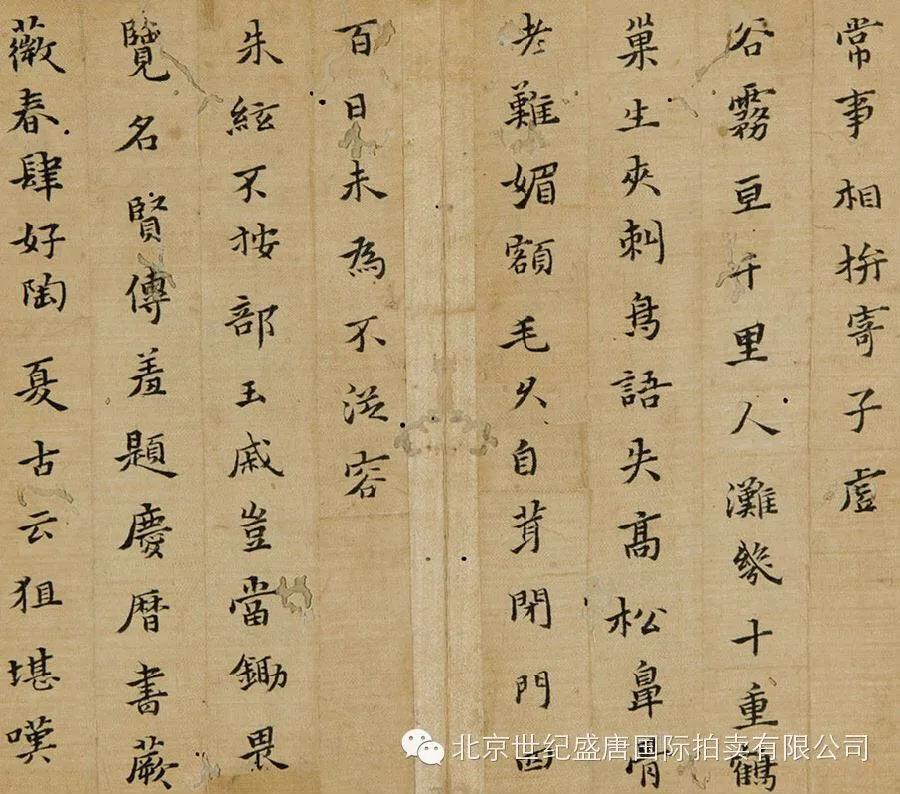 常事相拚寄子虛
谷霧亘千里人灘幾十重鶴
巢生夾刺鳥語失高松鼻骨
老難媚額毛久自茸閉門四
百日未為不從容
朱絃不按部玉戚豈當鋤畏
覽名賢傳羞題慶曆書蕨
薇春肆好陶夏古云狙堪嘆
北京世纪盛唐国际拍卖有限公司